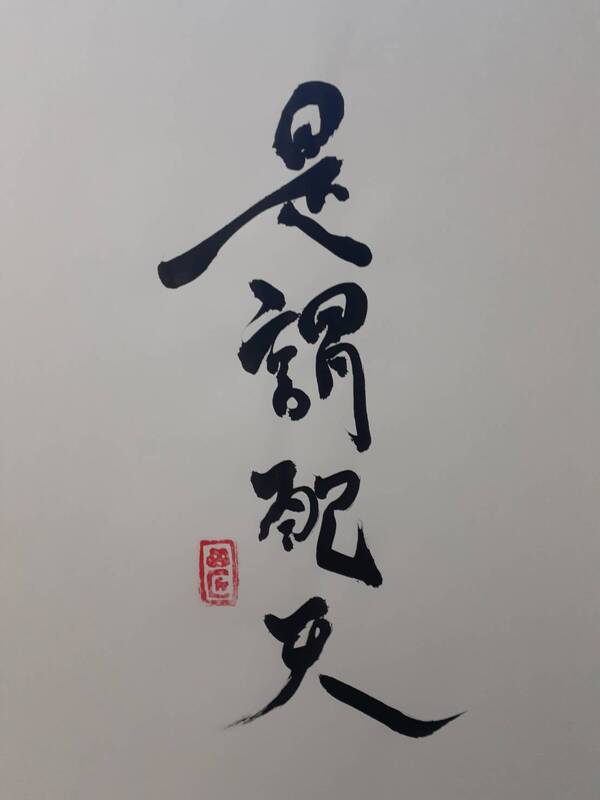 是謂配天